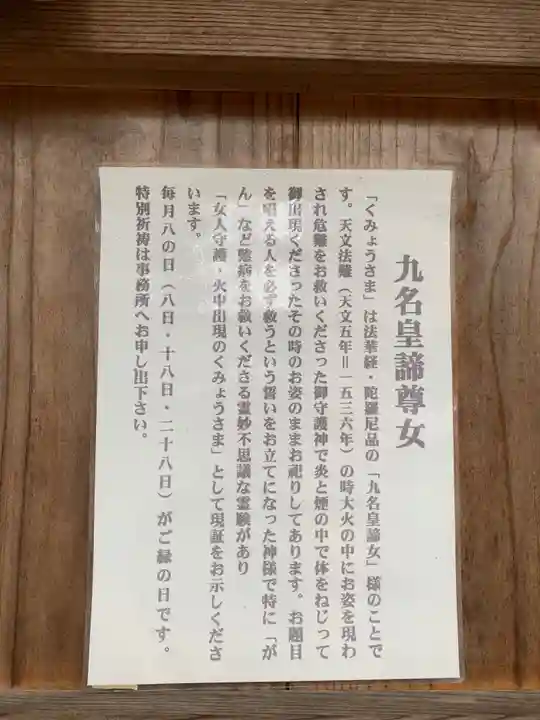 九名皇諦尊女
「くみょうさま」は法華経・陀羅尼品の「九名皇諦女」様のことで
す。天文法難（天文五年＝一五三六年）の時大火の中にお姿を現わ
され危難をお救いくださった御守護神で炎と煙の中で体をねじって
御出現くださったその時のお姿のままお祀りしてあります。お題目
を唱える人を必ず救うという誓いをお立てになった神様で特に「が
ん」など難病をお救いくださる霊妙不思議な霊験があり
「女人守護・火中出現のくみょうさま」として現証をお示しくださ
います。
毎月八の日（八日・十八日・二十八日）がご縁の日です。
特別祈祷は事務所へお申し出下さい。